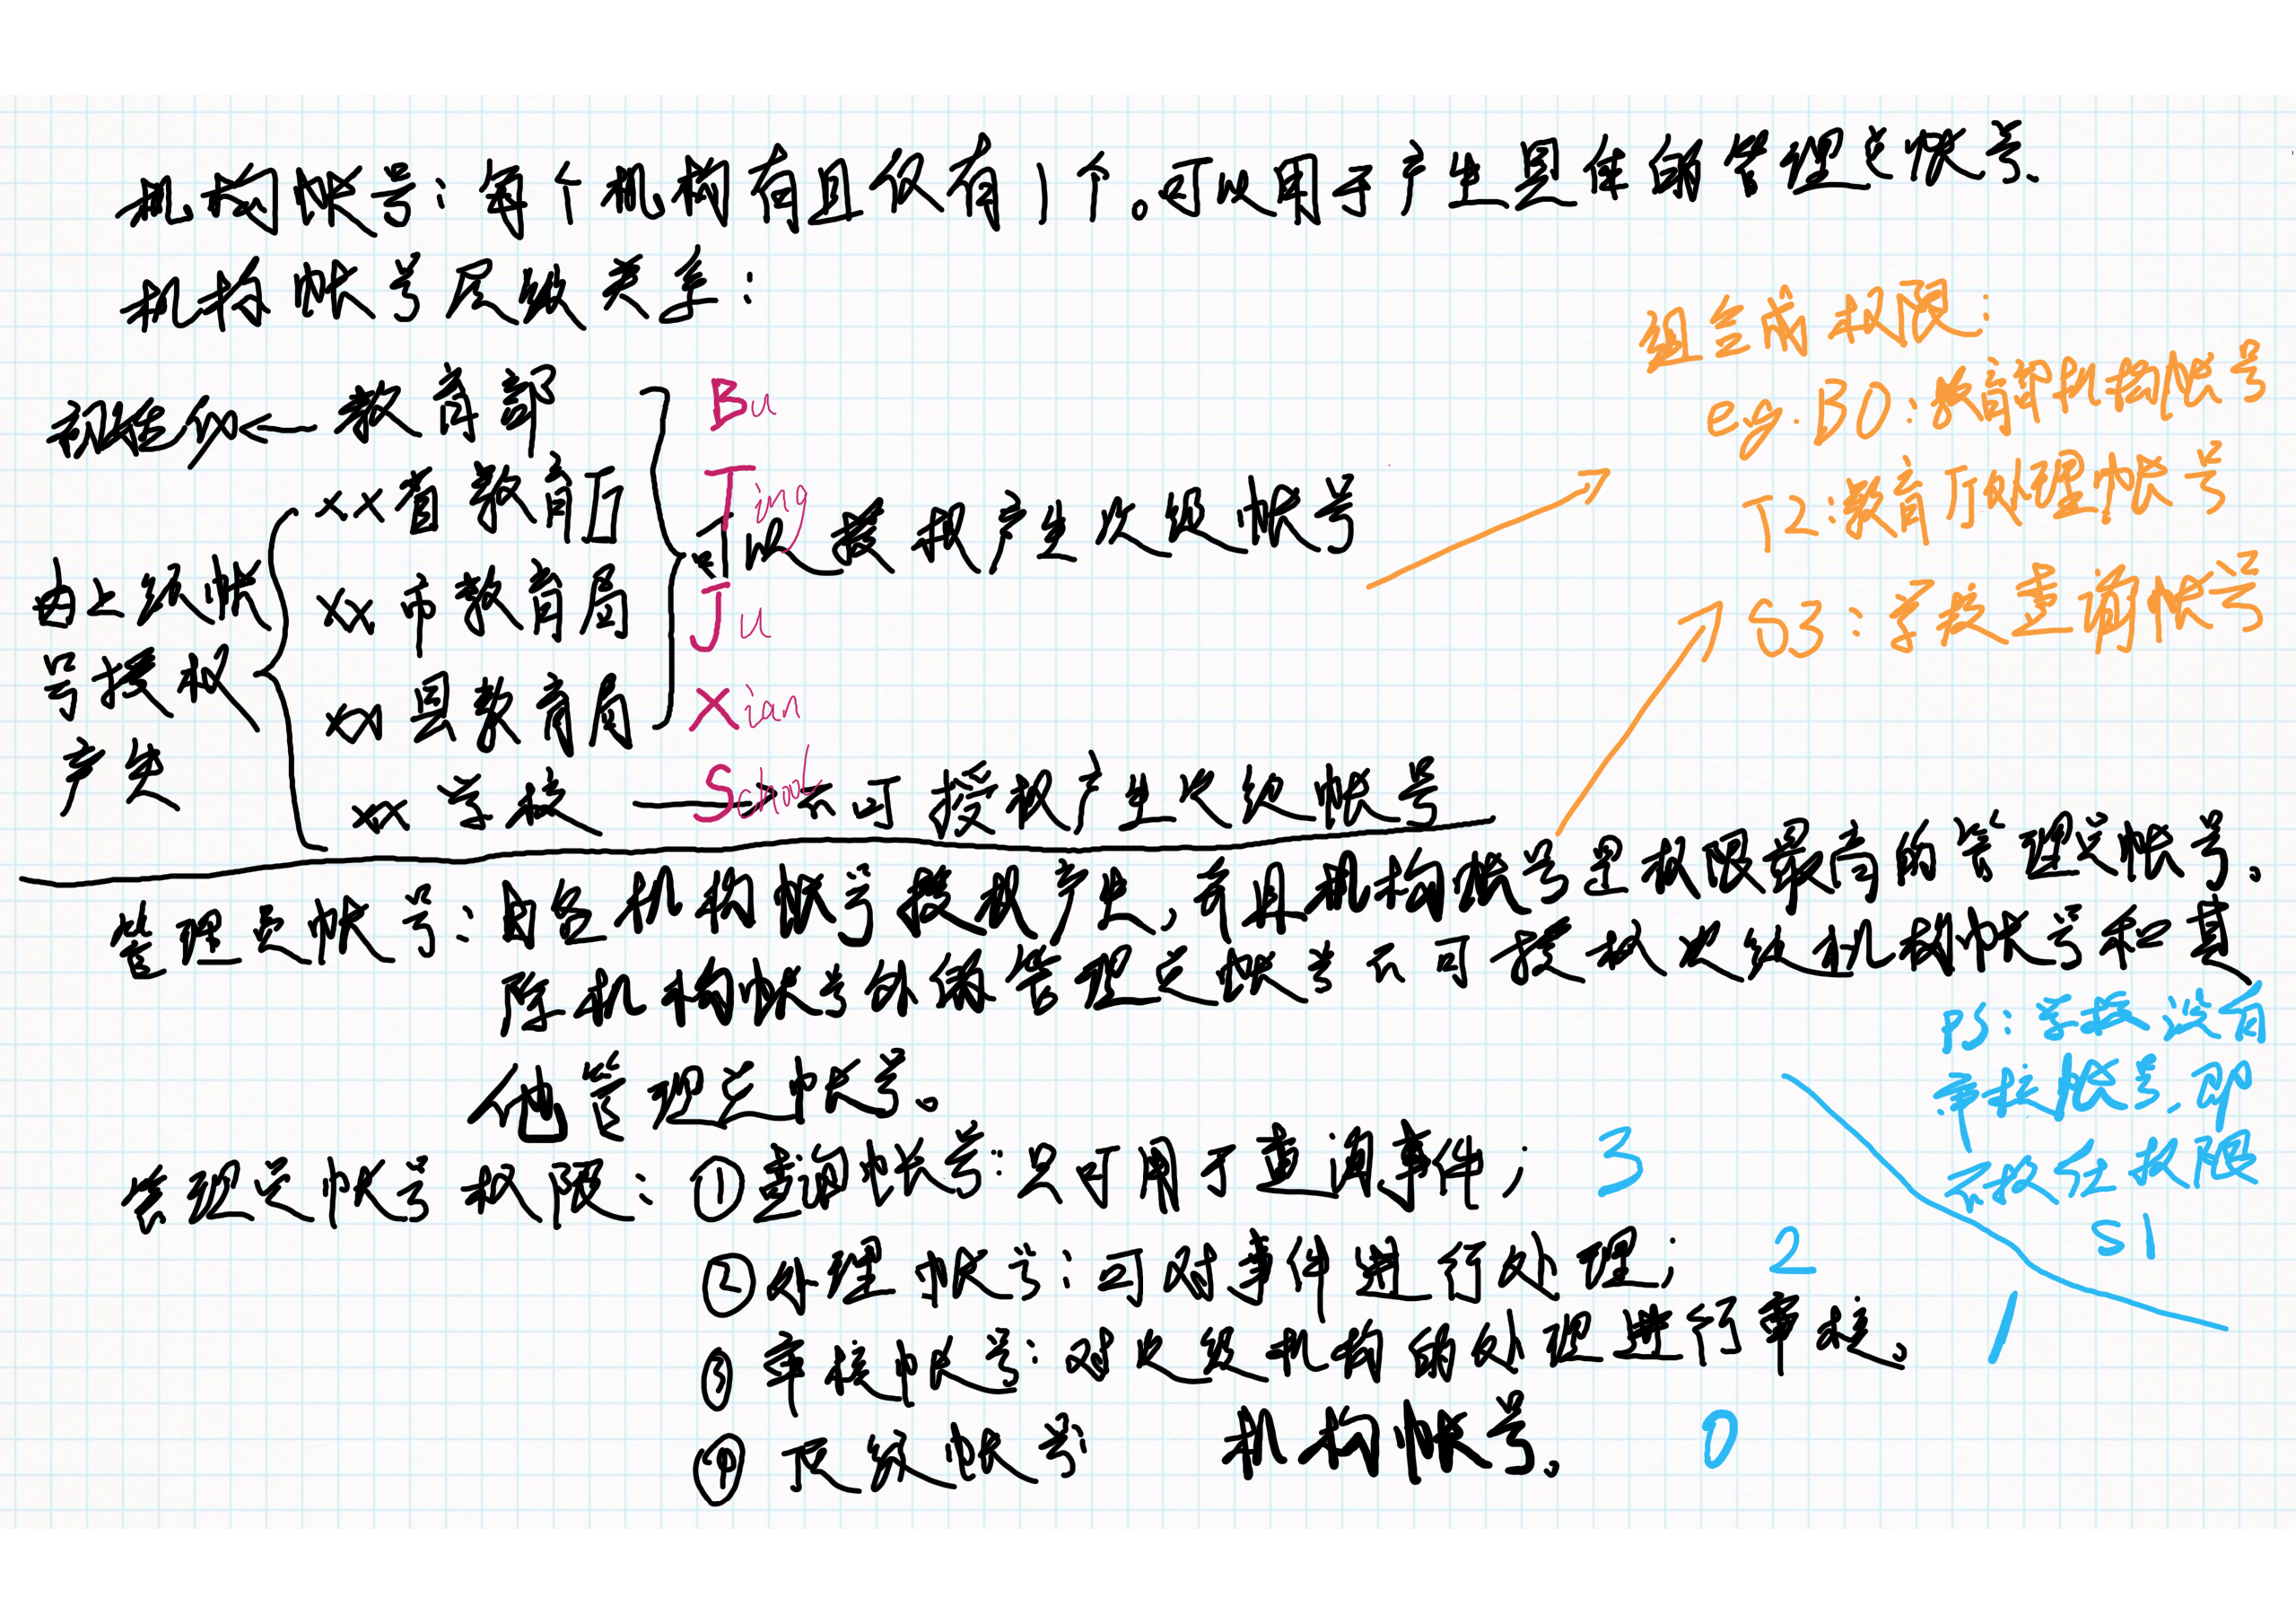 机构帐号：每个机构有且仅有1个。可以用于产生具体的管理员帐号.
机构帐号层级关系：
初始化←教育部
Bu
xx省教育厅
Ting
可以授权产生次级帐号
xx市教育局
Ju
xx县教育局
Xian
由上级帐
号授权
产生
xx学校
School
不可授权产生次级帐号
组合成权限：
eg.B0：教育部机构帐号
T2：教育厅处理帐号
S3：学校查询帐号
管理员帐号：由各机构帐号授权产生,并且机构帐号是权限最高的管理员帐号。
除机构帐号外的管理员帐号不可授权次级机构帐号和其
他管理员帐号。
PS：学校没有
审核帐号,即
不授任权限
S1
管理员帐号权限：①查询帐号：只可用于查询事件； 3
②处理帐号：可对事件进行处理； 2
③审核帐号：对次级机构的处理进行审核。 1
④顶级帐号： 机构帐号。 0